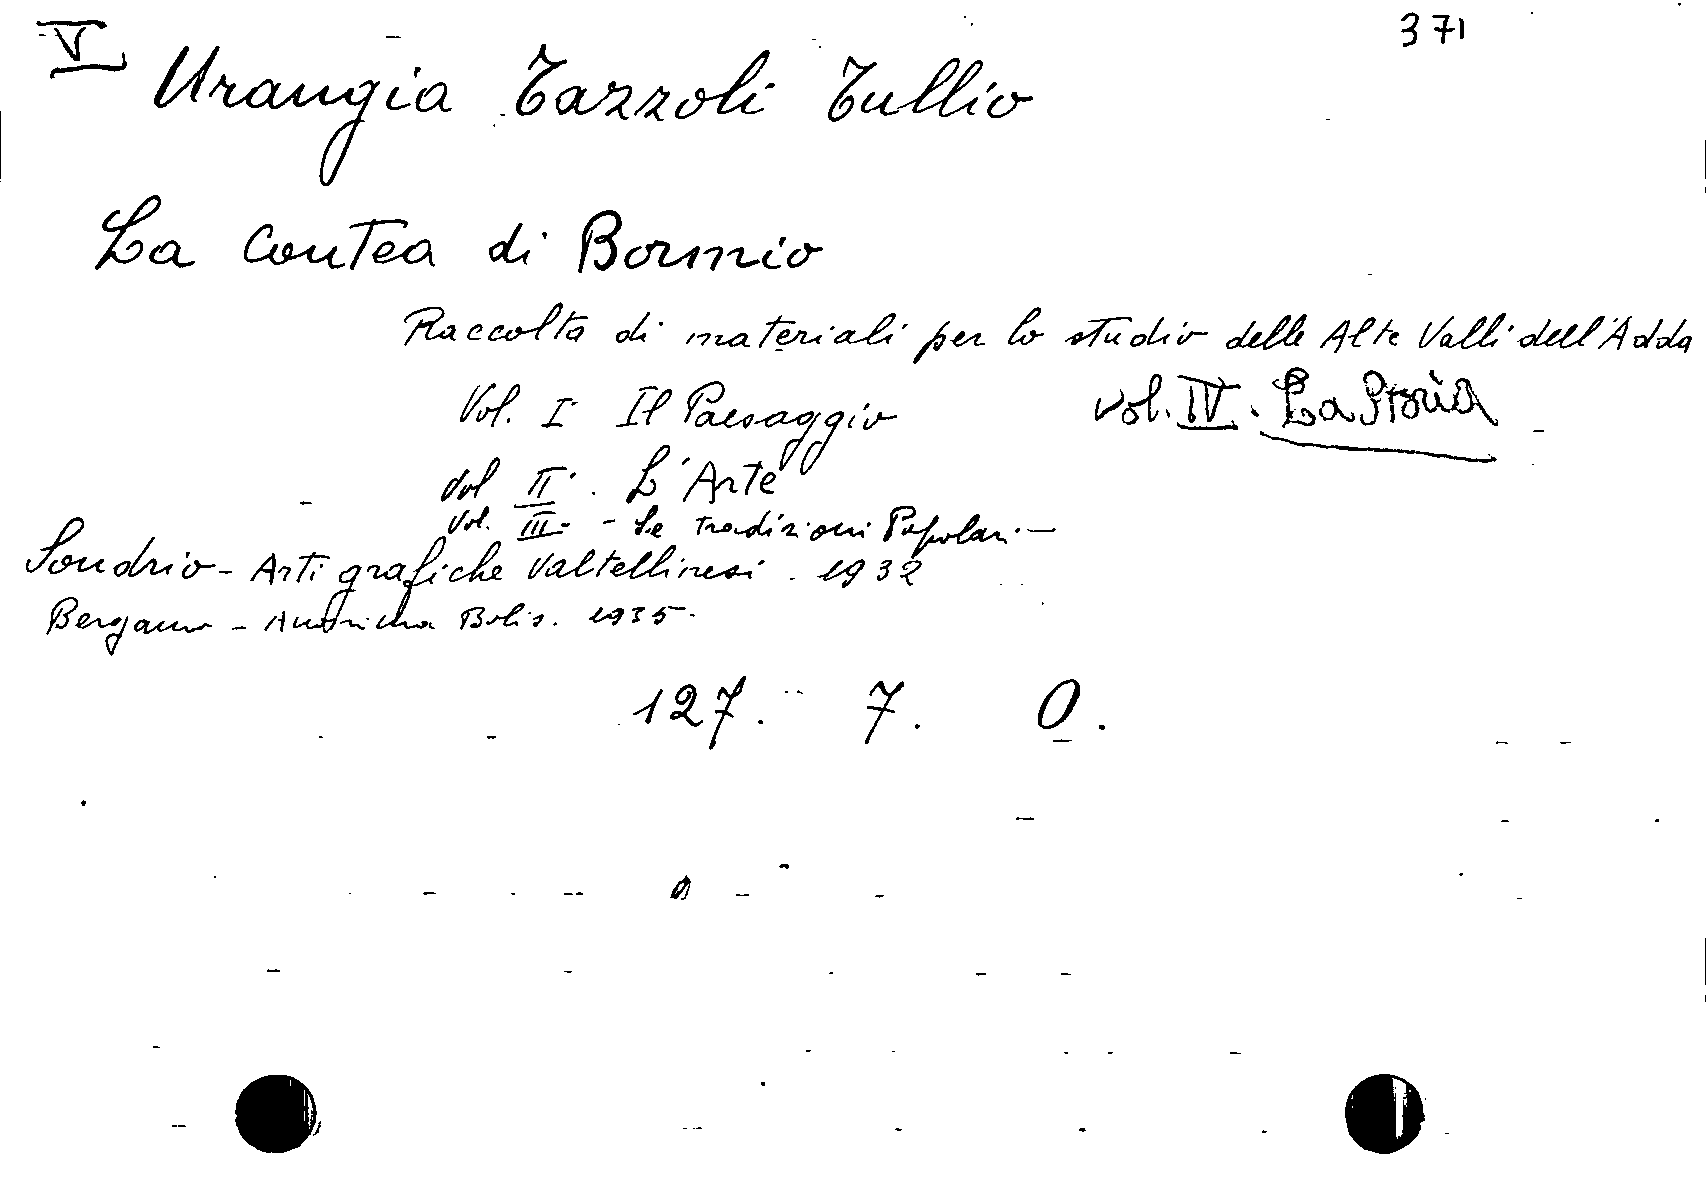 V 371
Urangia Tazzoli Tullio
La Contea di Bormio
Raccolta di materiali per lo studio delle Alte Valli dell'Adda
Vol. I Il Paesaggio vol. IV. La Storia
Vol II. L'Arte
Vol. III - Le Tradizioni Popolari -
Sondrio - Arti grafiche Valtellinesi. 1932
Bergamo - Anonima Bolis. 1935.
127. 7. 0.